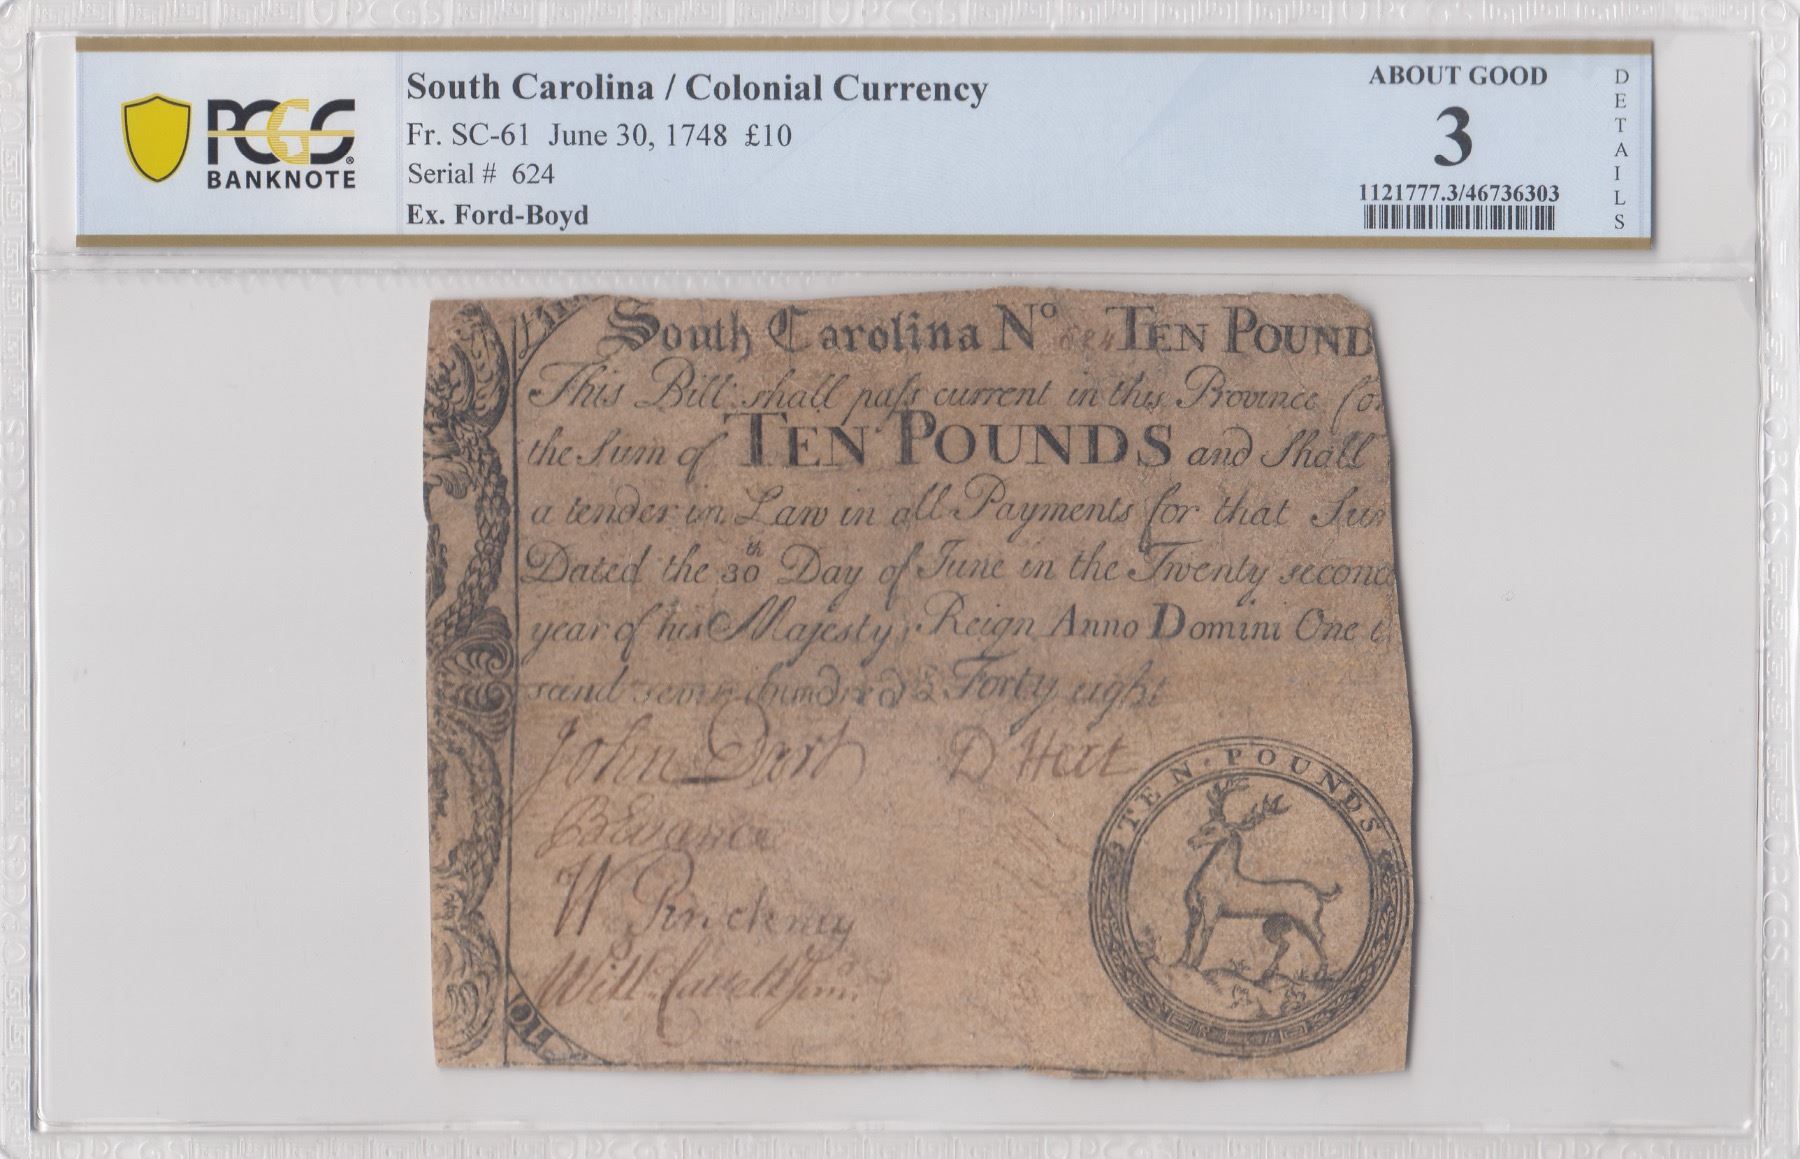 PCGS BANKNOTE
South Carolina / Colonial Currency
Fr. SC-61 June 30, 1748 £10
Serial # 624
Ex. Ford-Boyd
ABOUT GOOD
3
1121777.3/46736303
DETAILS
South Carolina No 624 TEN POUND
This Bill shall paſs current in this Province for
the Sum of TEN POUNDS and Shall
a tender in Law in all Payments for that Sum
Dated the 30th Day of June in the Twenty second
year of his Majestys Reign Anno Domini One t
sand seven hundred & Forty eight
John Dart D Hext
B Evance
W Pinckney
Willm Cattell Junr.
TEN · POUNDS